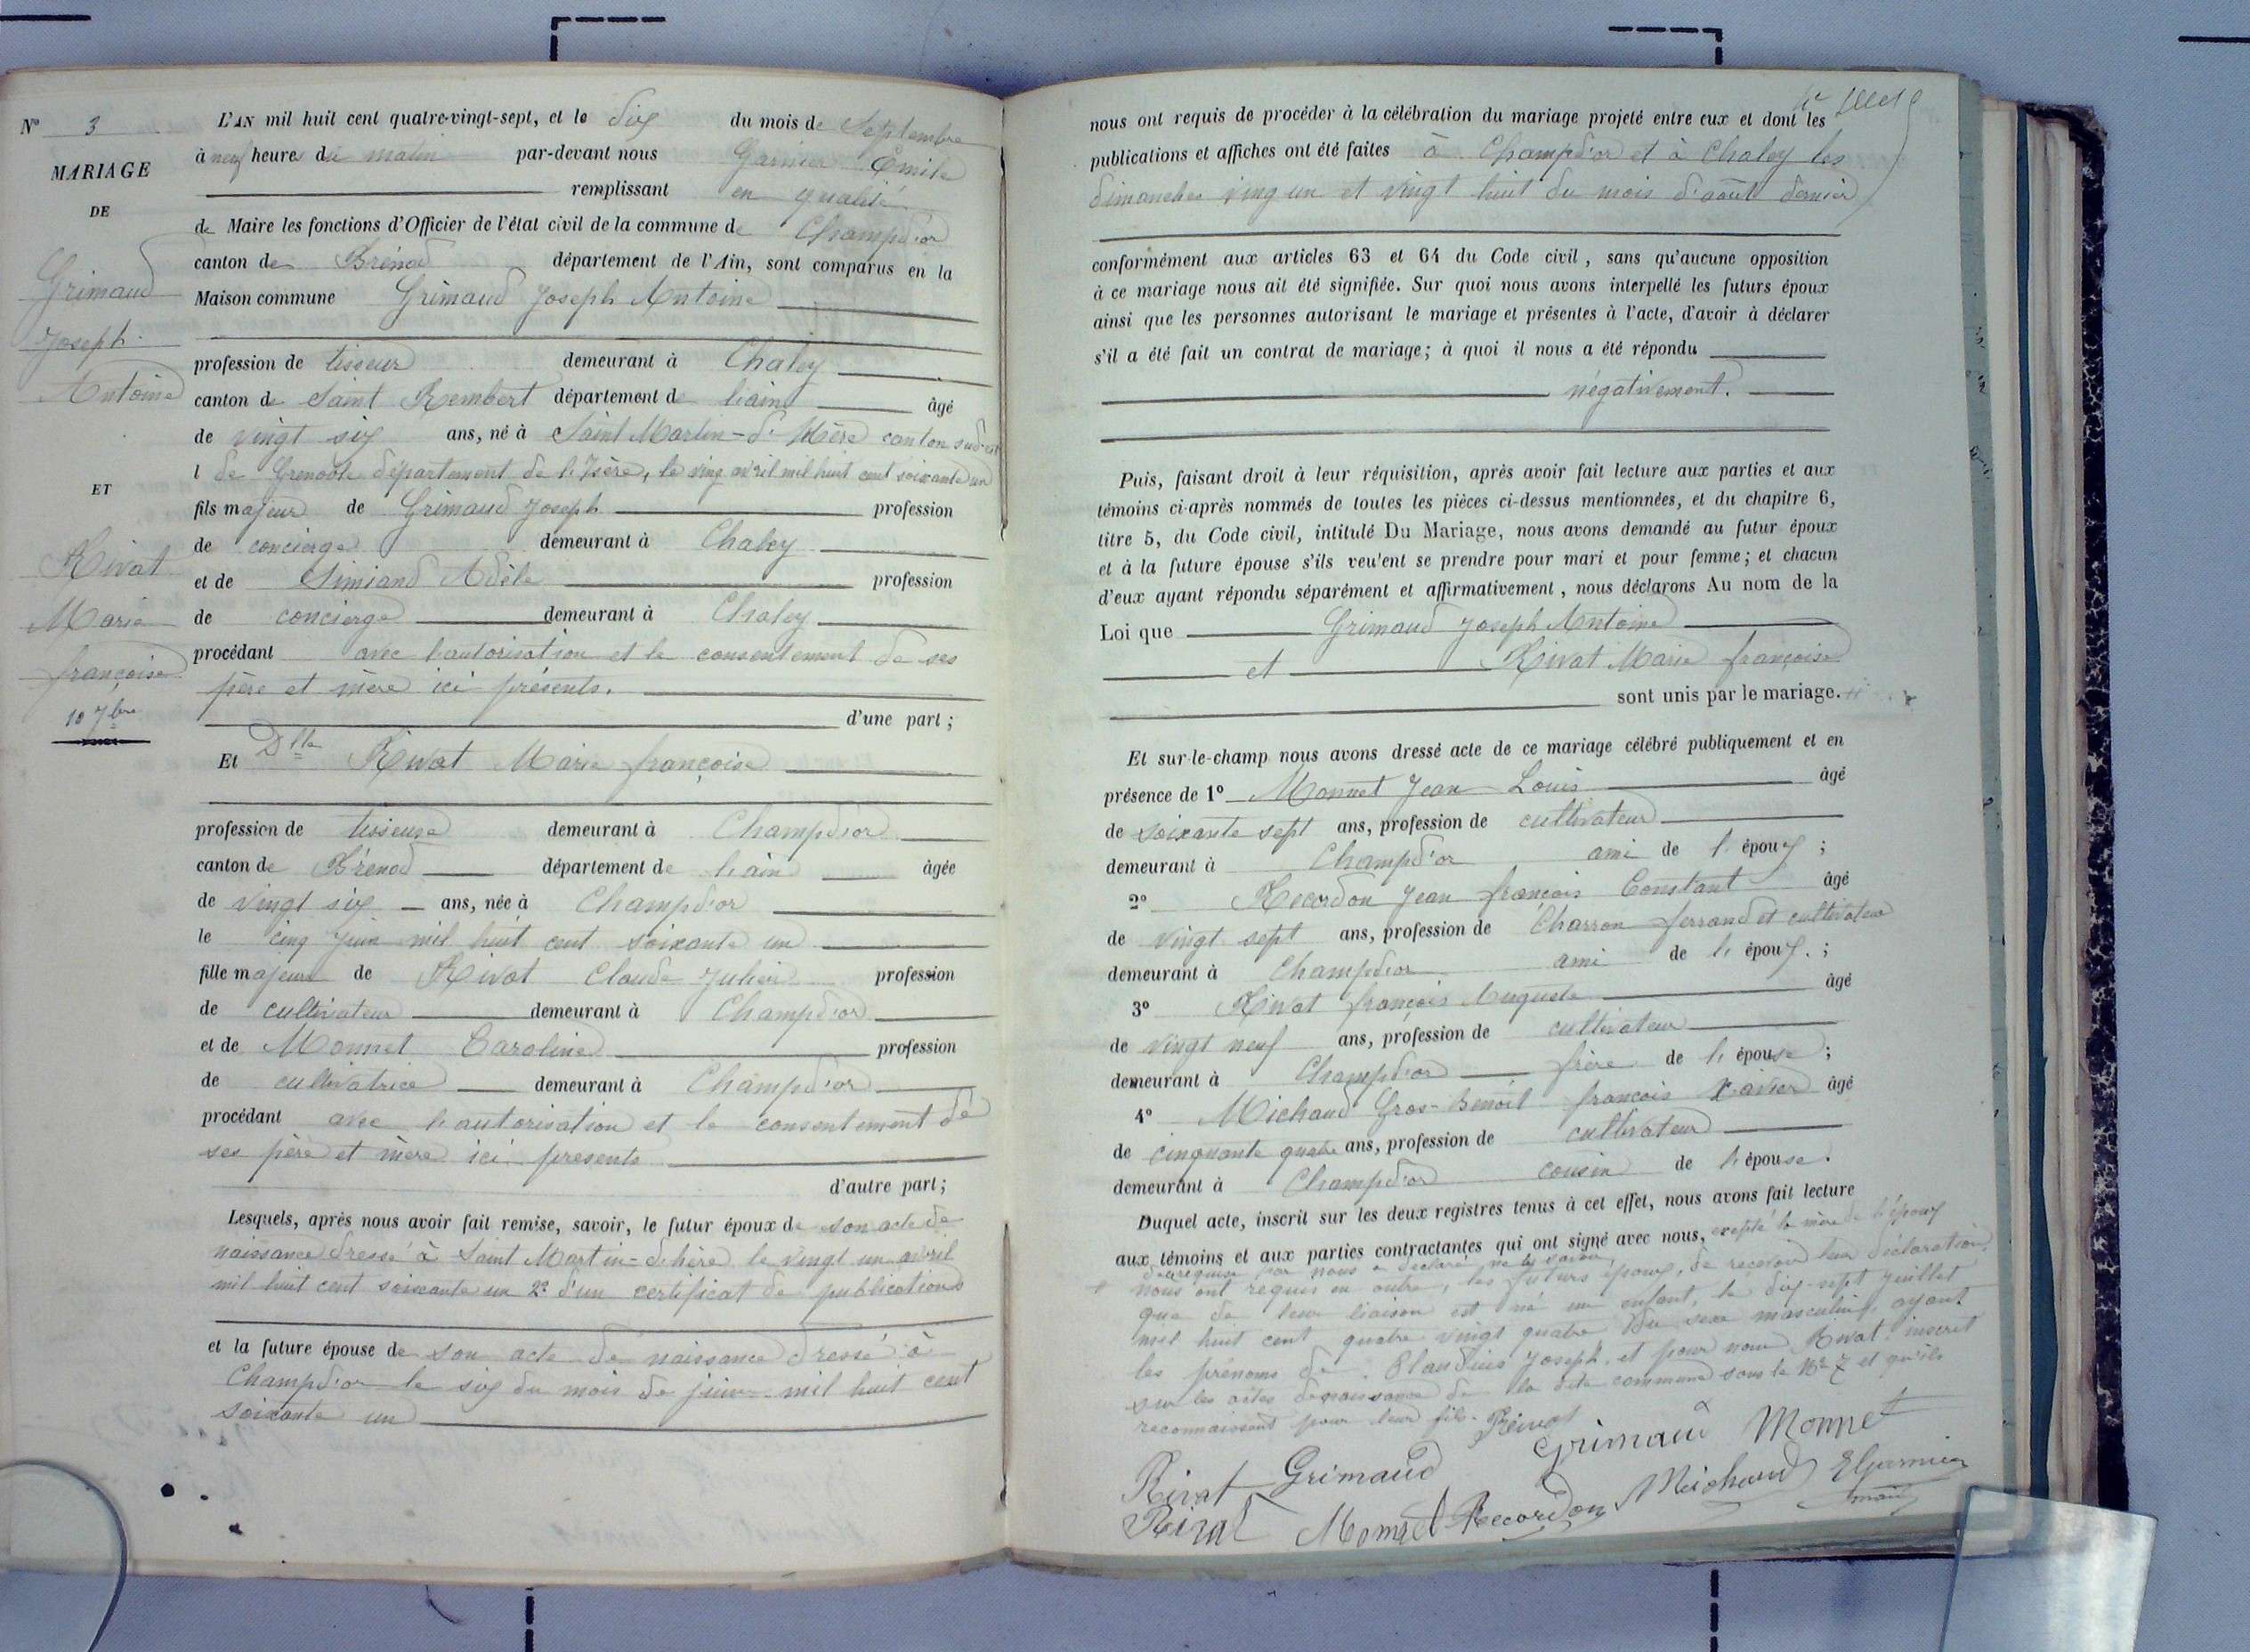 Nº 3
MARIAGE
DE
Grimaud
Joseph
Antoine
ET
Rivat
Marie
françoise
10 7bre
L'AN mil huit cent quatre-vingt-sept, et le dix du mois de Septembre
à neuf heures du matin par-devant nous Garnier Emile
remplissant en qualité
de Maire les fonctions d'Officier de l'état civil de la commune de Champd'or
canton de Brénod département de l'Ain, sont comparus en la
Maison commune Grimaud Joseph Antoine
profession de tisseur demeurant à Chaley
canton de Saint Rembert département de l'ain âgé
de vingt six ans, né à Saint Martin-d'Hère canton sud est
de Grenoble département de l'Isère, le ving avril mil huit cent soixante un
fils majeur de Grimaud Joseph profession
de concierge demeurant à Chaley
et de Simiand Adèle profession
de concierge demeurant à Chaley
procédant avec l'autorisation et le consentement de ses
père et mère ici présents.
d'une part ;
Et Dlle Rivat Marie françoise
profession de tisseuse demeurant à Champd'or
canton de Brénod département de l'ain âgée
de vingt six ans, née à Champd'or
le cinq juin mil huit cent soixante un
fille majeure de Rivat Claude Julien profession
de cultivateur demeurant à Champd'or
et de Monnet Caroline profession
de cultivatrice demeurant à Champd'or
procédant avec l'autorisation et le consentement de
ses père et mère ici presents
d'autre part ;
Lesquels, après nous avoir fait remise, savoir, le futur époux de son acte de
naissance dressé à Saint Martin-d'hère le vingt un avril
mil huit cent soixante un 2º d'un certificat de publications
et la future épouse de son acte de naissance dressé à
Champd'or le six du mois de juin mil huit cent
soixante un
nous ont requis de procéder à la célébration du mariage projeté entre eux et dont les
publications et affiches ont été faites à Champd'or et à Chaley les
dimanches ving un et vingt huit du mois d'août dernier
conformément aux articles 63 et 64 du Code civil, sans qu'aucune opposition
à ce mariage nous ait été signifiée. Sur quoi nous avons interpellé les futurs époux
ainsi que les personnes autorisant le mariage et présentes à l'acte, d'avoir à déclarer
s'il a été fait un contrat de mariage ; à quoi il nous a été répondu
négativement.
Puis, faisant droit à leur réquisition, après avoir fait lecture aux parties et aux
témoins ci-après nommés de toutes les pièces ci-dessus mentionnées, et du chapitre 6,
titre 5, du Code civil, intitulé Du Mariage, nous avons demandé au futur époux
et à la future épouse s'ils veu'ent se prendre pour mari et pour femme ; et chacun
d'eux ayant répondu séparément et affirmativement, nous déclarons Au nom de la
Loi que Grimaud Joseph Antoine
et Rivat Marie françoise
sont unis par le mariage.
Et sur-le-champ nous avons dressé acte de ce mariage célébré publiquement et en
présence de 1º Monnet Jean Louis âgé
de soixante sept ans, profession de cultivateur
demeurant à Champd'or ami de l'époux ;
2º Recordon Jean françois Constant âgé
de vingt sept ans, profession de Charron ferrand et cultivateur
demeurant à Champd'or ami de l'époux. ;
3º Rivat françois Auguste âgé
de vingt neuf ans, profession de cultivateur
demeurant à Champd'or frère de l'épouse ;
4º Michaud Gros-Benoit françois Xavier âgé
de cinquante quatre ans, profession de cultivateur
demeurant à Champd'or cousin de l'épouse.
Duquel acte, inscrit sur les deux registres tenus à cet effet, nous avons fait lecture
aux témoins et aux parties contractantes qui ont signé avec nous, excepté la mère de l'époux
requise par nous a déclaré ne le savoir
nous ont requis en outre, les futurs époux, de recevoir leur déclaration
que de leur liaison est né un enfant, le dix-sept juillet
mil huit cent quatre vingt quatre du sexe masculin, ayant
les prénoms de Claudius Joseph, et pour nom Rivat inscrit
sur les actes de naissance de la dite commune sous le Nº 7 et qu'ils
reconnaissent pour leur fils. Rivat
Grimaud Monnet
Rivat Grimaud
Rivat Monnet Recordon Michaud E Garnier
maire